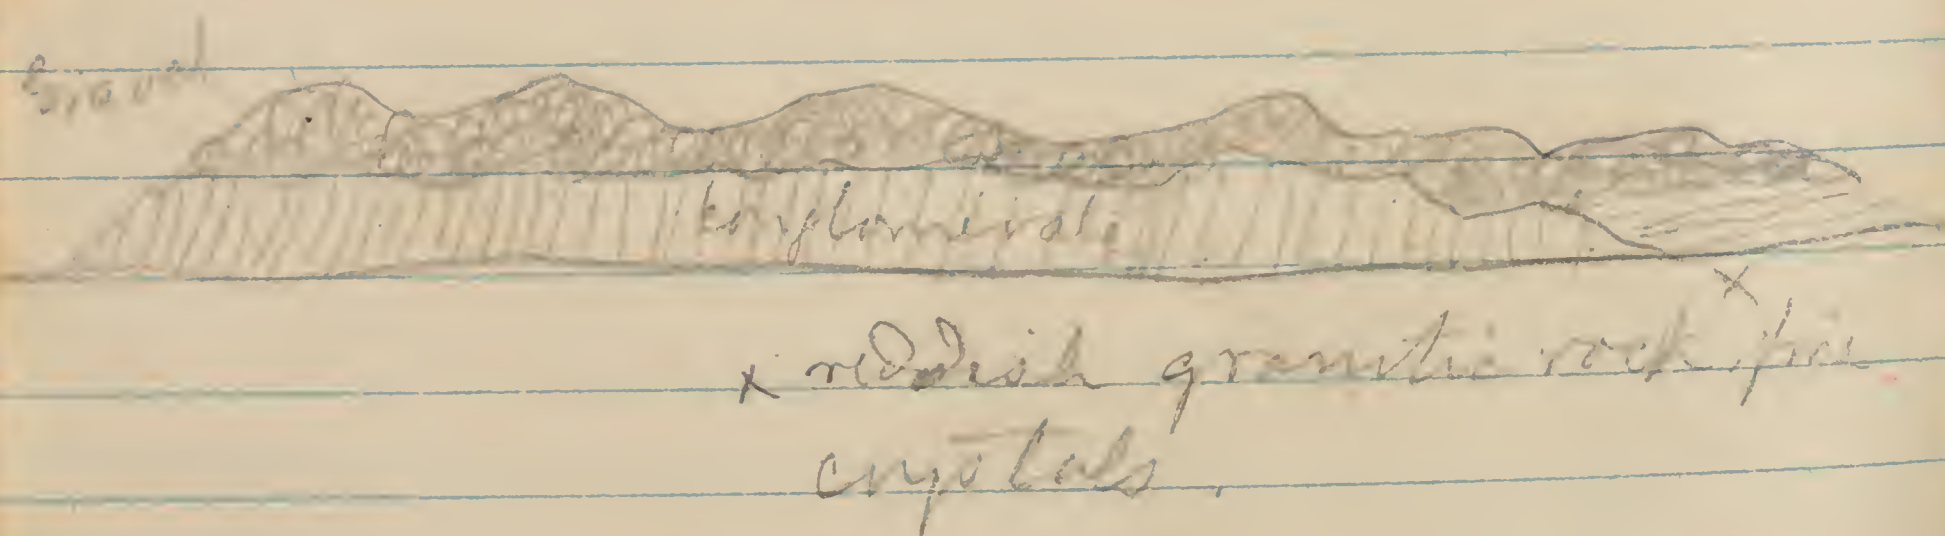 Gravel
Conglomerate
x
x reddish granitic rock, fine
crystals.